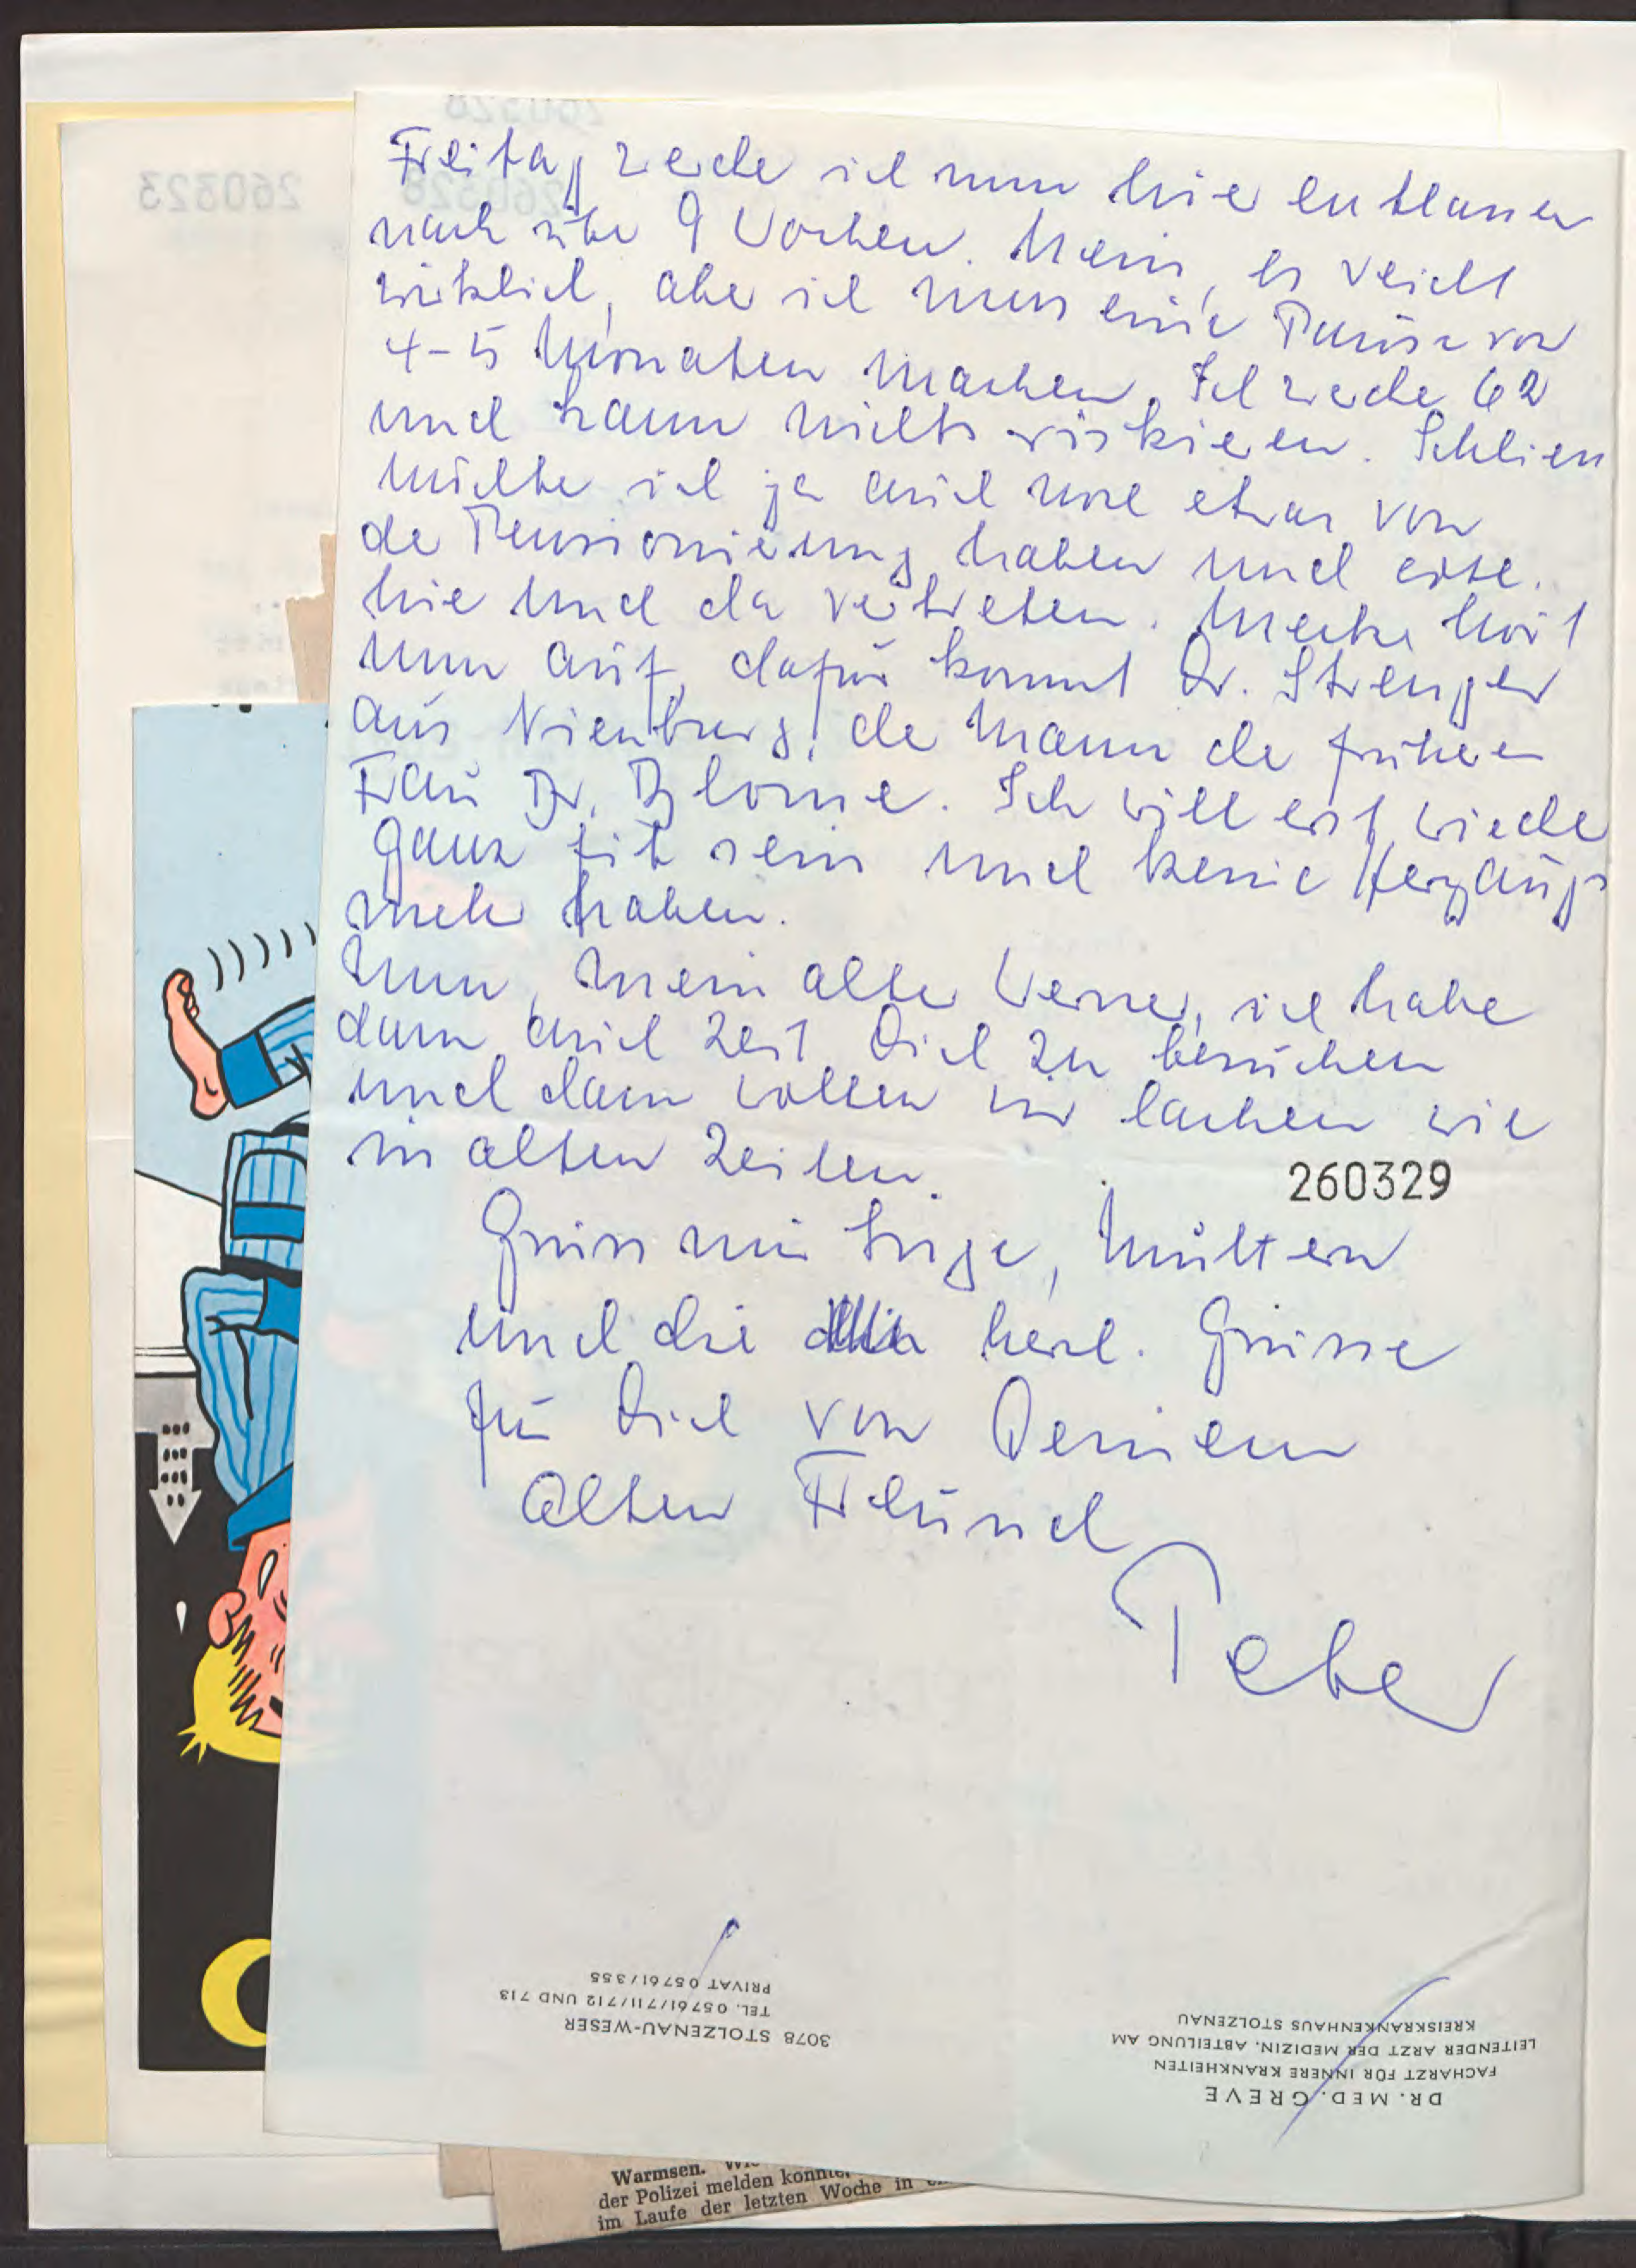 Freitag werde ich nun hier entlassen
nach über 9 Wochen. Nein, es reicht
wirklich, aber ich muss eine Pause von
4-5 Monaten machen. Ich werde 62
und kann nichts riskieren. Schliessl
möchte ich ja auch noch etwas von
der Pensionierung haben und
hie und da vertreten. hört
nun auf, dafür kommt Dr. Strenger
aus Nienburg, der Mann der früheren
Frau Dr. Blome. Ich will erst wieder
ganz fit sein und keine Herzangs
mehr haben.
Nun, mein alter Werner, ich habe
dann auch Zeit Dich zu besuchen
und dann wollen wir lachen wie
in alten Zeiten.
260329
Grüss mir Inge, Muttern
und die herzl. Grüsse
für Dich von Deinem
Alten Freund
Peter
DR. MED. GREVE
FACHARZT FÜR INNERE KRANKHEITEN
LEITENDER ARZT DER MEDIZIN. ABTEILUNG AM
KREISKRANKENHAUS STOLZENAU
3078 STOLZENAU-WESER
TEL. 05761/711/712 UND 713
PRIVAT 05761/355
260328
260323
260328
Warmsen.
der Polizei melden
im Laufe der letzten Woche in